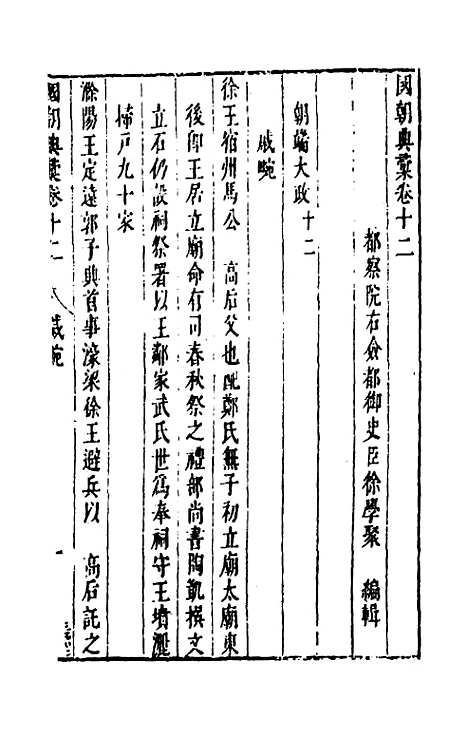 國朝典彙卷十二
都察院右僉都御史臣徐學聚　編輯
朝端大政十二
戚畹
徐王宿州馬公　高后父也配鄭氏無子初立廟太廟東
後卽王居立廟命有司春秋祭之禮部尚書陶凱撰文
立石仍設祠祭署以王鄰家武氏世爲奉祠守王墳灑
掃戶九十家
滁陽王定遠郭子興首事濠梁徐王避兵以　高后託之
國朝典彙卷十二　戚畹　一